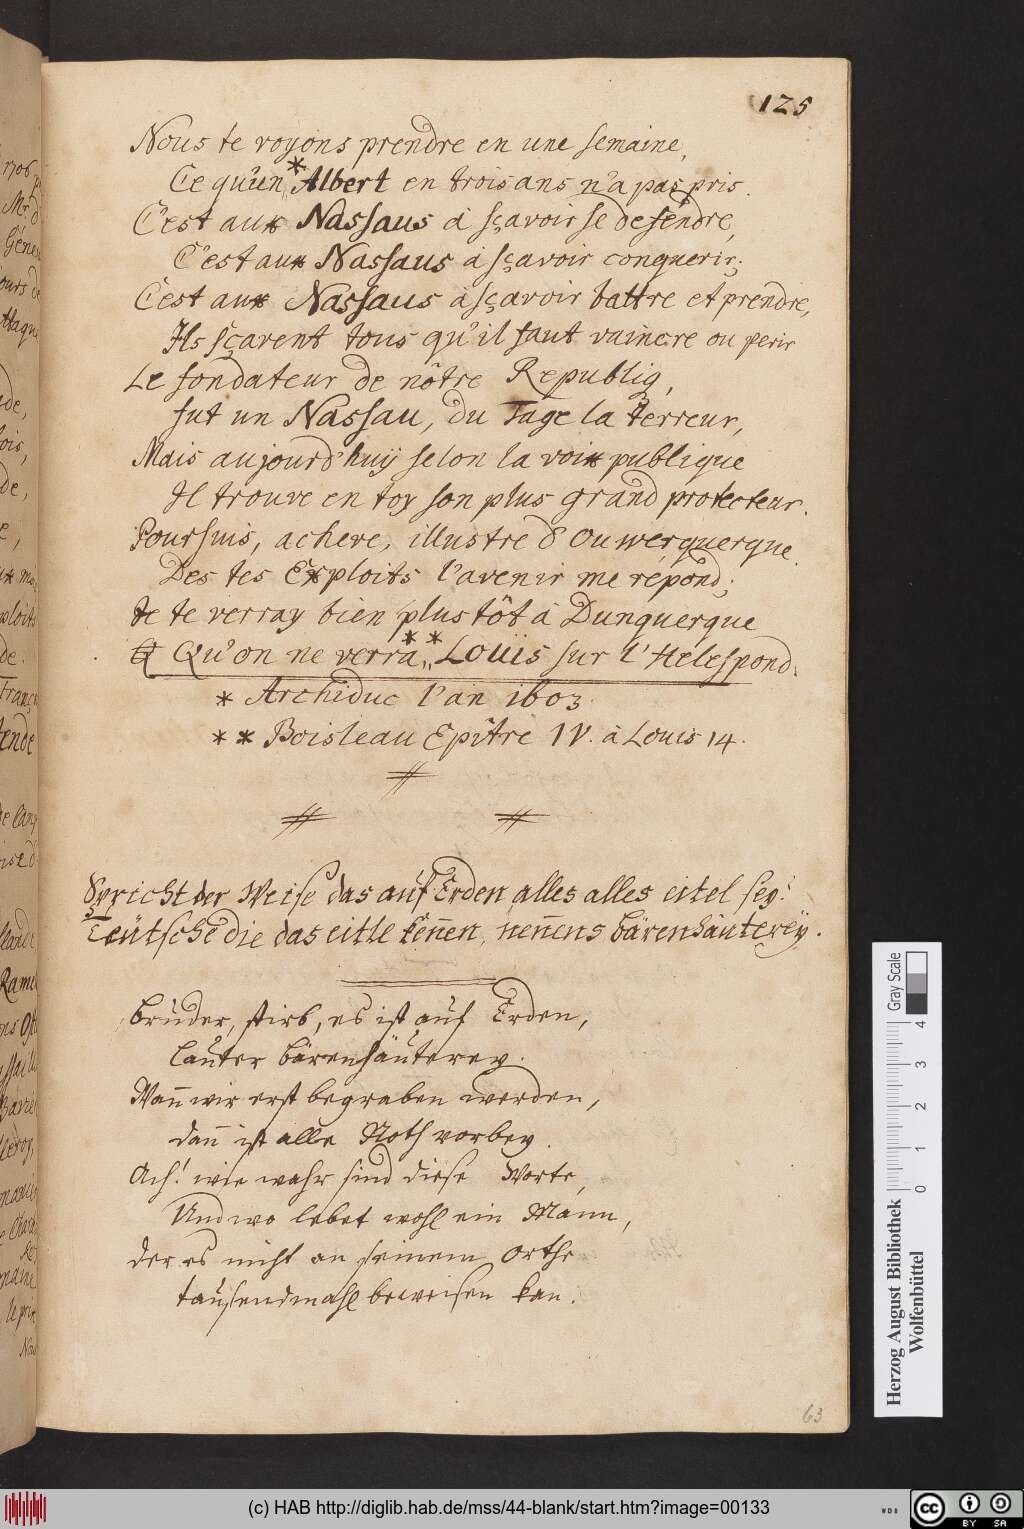 125
Nous te voyons prendre en une semaine,
Ce qu'un * Albert en trois ans n'a pas pris.
C'est aux Nassaus à sçavoir se defendre,
C'est aux Nassaus à sçavoir conquerir;
C'est aux Nassaus à sçavoir battre et prendre,
Ils sçavent tous qu'il faut vaincre ou perir
Le fondateur de nôtre Republiq,
fut un Nassau, du Tage la terreur,
Mais aujourd'huÿ selon la voix publique
Il trouve en toy son plus grand protecteur.
Poursuis, acheve, illustre d'Ouwerquerque.
Des tes Exploits l'avenir me répond;
Je te verray bien plustôt à Dunquerque
Qu'on ne verra ** Louïs sur l'Helespond.
* Archiduc l'an 1603.
** Boisleau Epître IV. à Louis 14.
Spricht der Weise das auf Erden alles alles eitel sey:
Teütsche die das eitle keñen, neñens bärenhäutereÿ.
Bruder, stirb, es ist auf Erden,
lauter bärenhäuterey.
Wañ wir erst begraben werden,
dañ ist alle Noth vorbey.
Ach! wie wahr sind diese Worte,
Und wo lebet wohl ein Mann,
der es nicht an seinem Orthe
tausendmahl beweisen kan.
63
Gray Scale
0 1 2 3 4
Herzog August Bibliothek
Wolfenbüttel
(c) HAB http://diglib.hab.de/mss/44-blank/start.htm?image=00133
WDB
cc BY SA